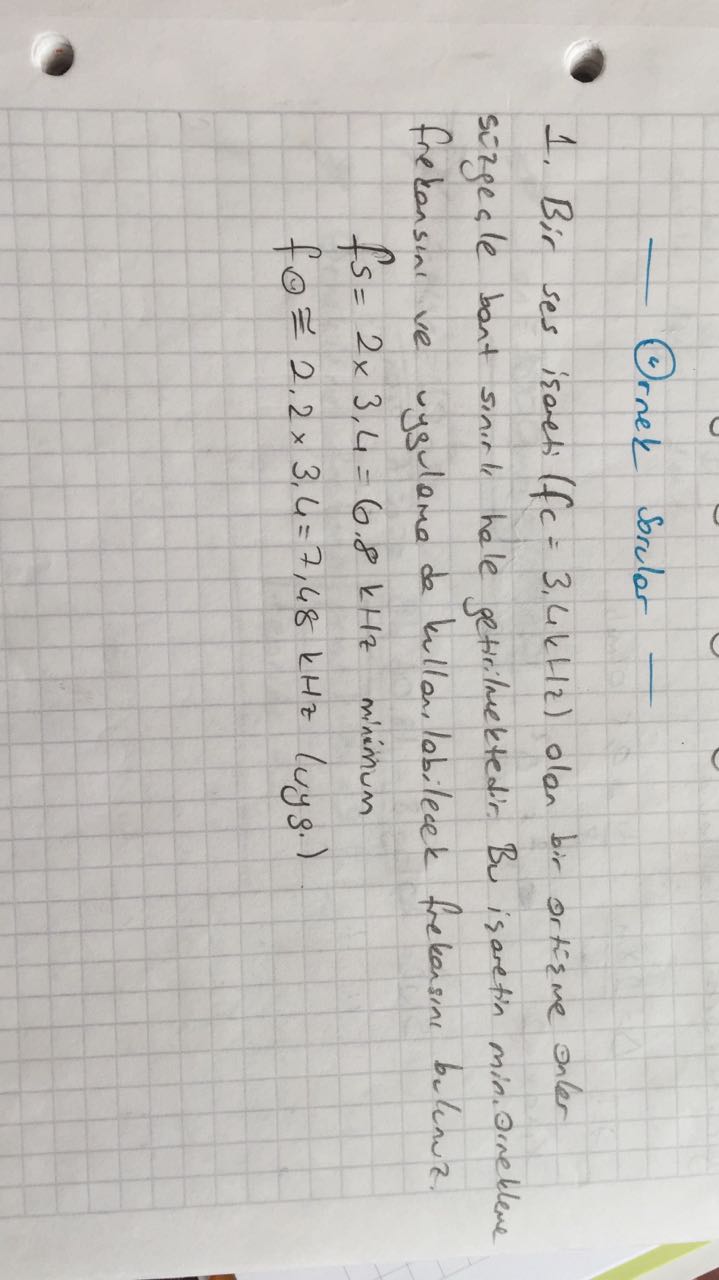 — Örnek Sorular —
1. Bir ses işareti (fc = 3,4 kHz) olan bir örtüşme önler
süzgeçle bant sınırlı hale getirilmektedir. Bu işaretin min. örnekleme
frekansını ve uygulama da kullanılabilecek frekansını bulunuz.
fs = 2 x 3,4 = 6,8 kHz minimum
fö ≅ 2,2 x 3,4 = 7,48 kHz (uyg.)